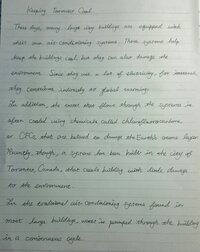 Keeping Toronto Cool
These days, many large city buildings are equipped with
their own air-conditioning systems. These systems help
keep the buildings cool, but they can also damage the
environment. Since they use a lot of electricity, for instance,
they contribute indirectly to global warming.
In addition, the water that flows through the systems is
often cooled using chemicals called chlorofluorocarbons,
or CFCs, that are believed to damage the Earth's ozone layer.
Recently, though, a system has been built in the city of
Toronto, Canada, that cools buildings with little damage
to the environment.
In the traditional air-conditioning systems found in
most large buildings, water is pumped through the building
in a continuous cycle.